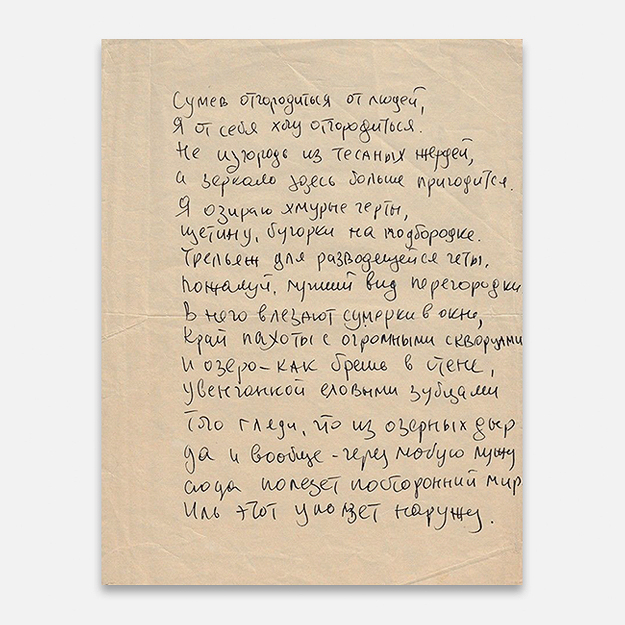 Сумев отгородиться от людей,
Я от себя хочу отгородиться.
Не изгородь из тесаных жердей,
а зеркало здесь больше пригодится.
Я озираю хмурые черты,
щетину, бугорки на подбородке.
Трельяж для разводящейся четы,
пожалуй, лучший вид перегородки
В него влезают сумерки в окне,
край пахоты с огромными скворцами
и озеро - как брешь в стене,
увенчанной еловыми зубцами
Того гляди, что из озерных дыр
да и вообще - через любую лужу
сюда полезет посторонний мир
Иль этот уползет наружу.